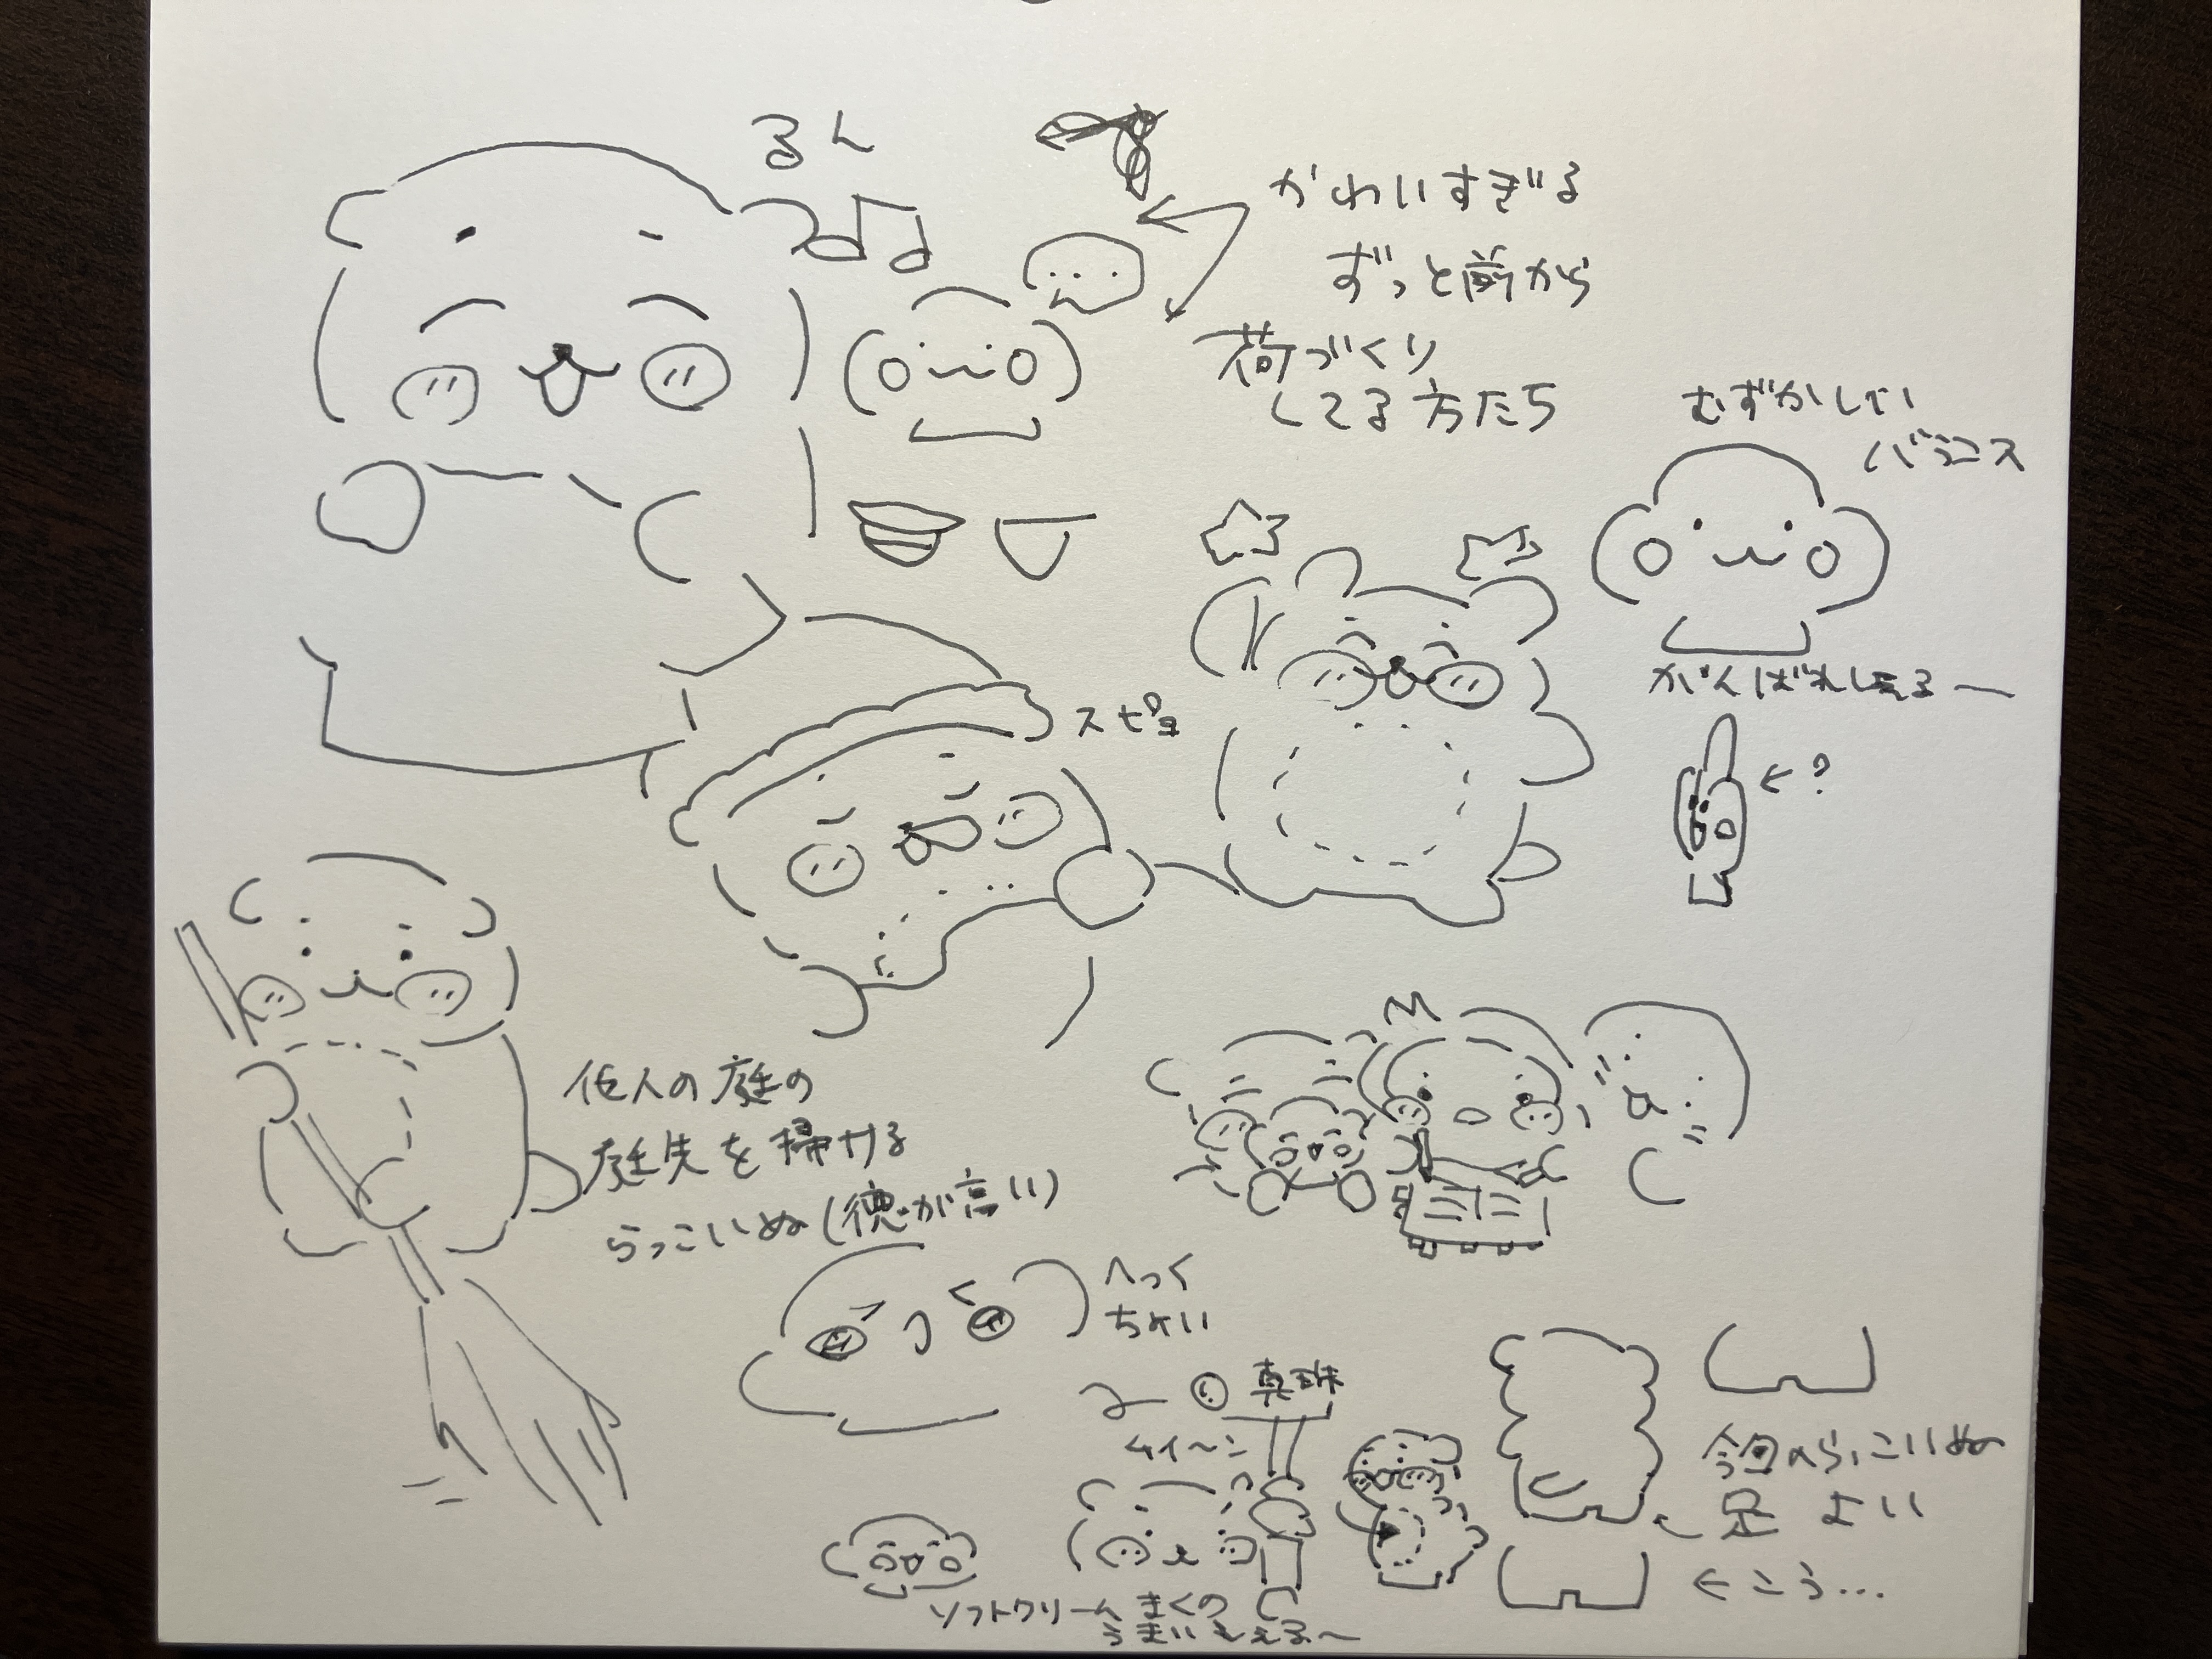 るん
かわいすぎる
ずっと前から
荷づくり
してる方たち
むずかしい
バランス
がんばれしえる〜
←?
スピョ
他人の庭の
庭先を掃ける
らっこいぬ(徳が高い)
へっく
ちょい
真珠
ムイ〜ン
今回のらっこいぬ
足 よい
←こう…
ソフトクリーム まくの
うまい しえる〜